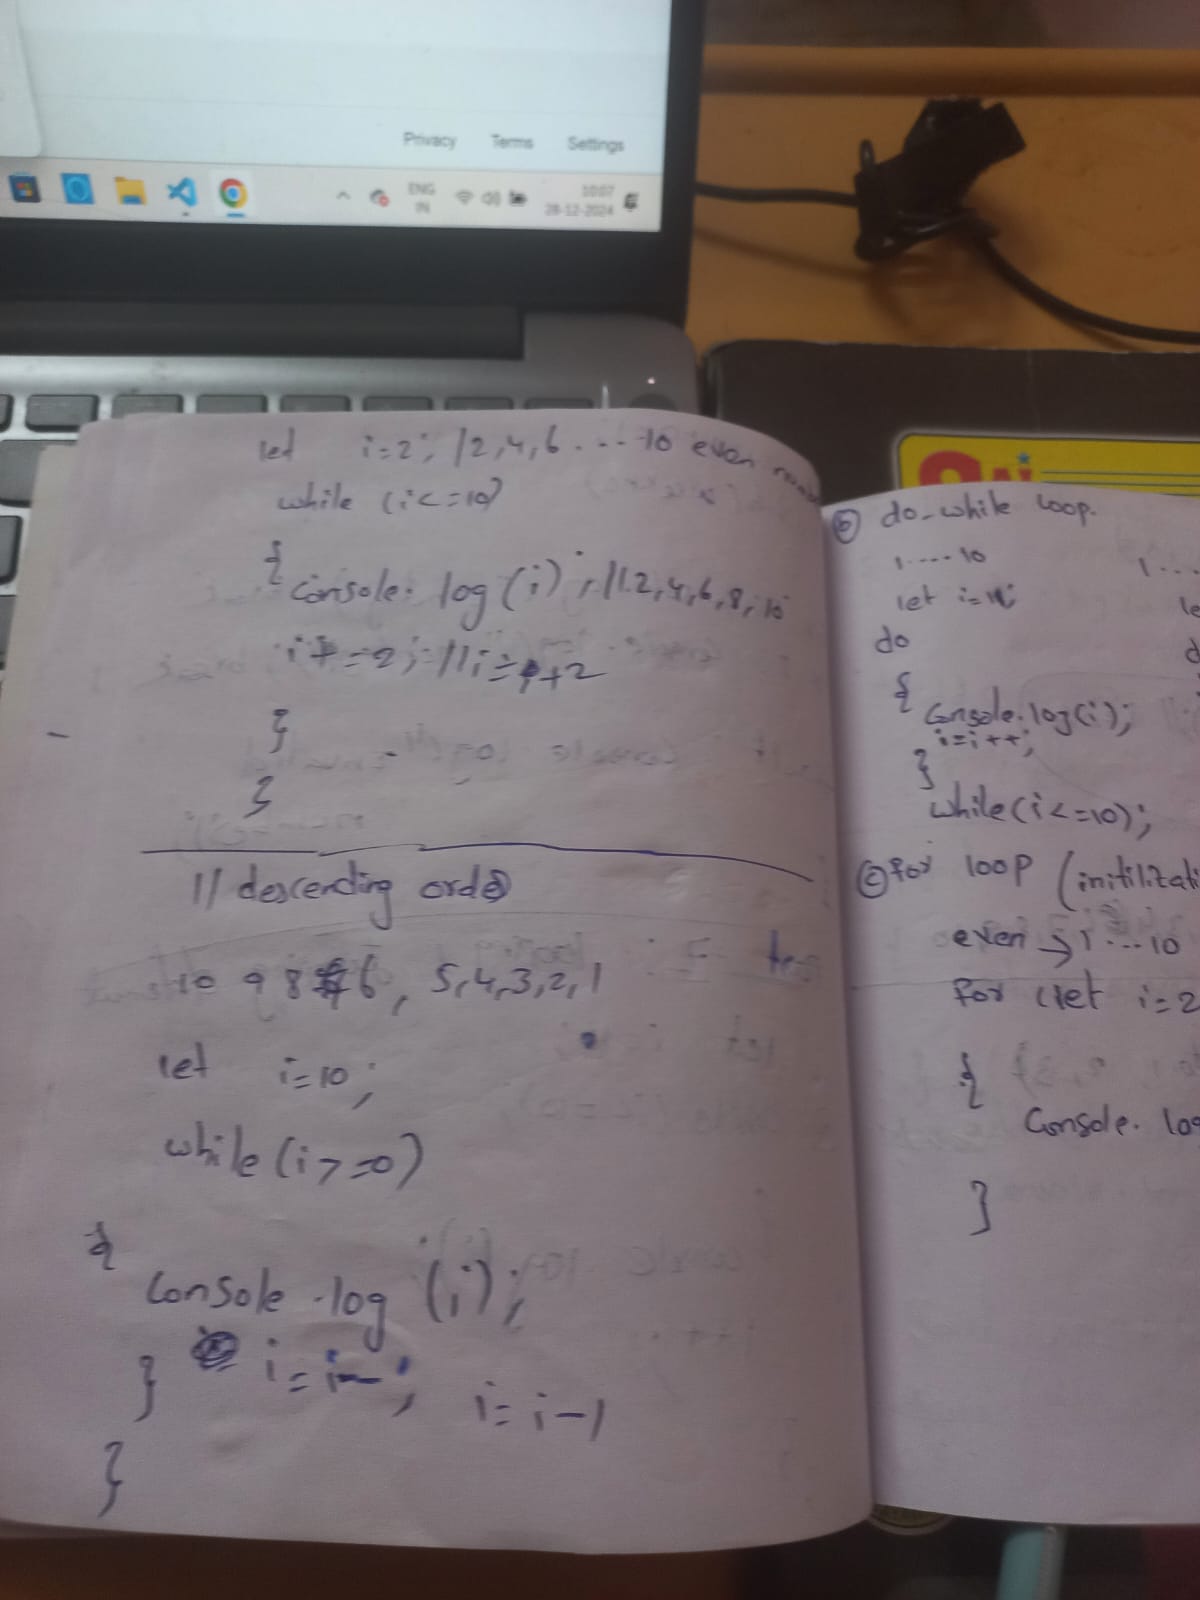 Privacy Terms Settings
ENG
IN
10:07
28-12-2024
let i=2; / 2,4,6 .... 10 even
while (i<=10)
{
console. log (i); //.2,4,6,8,10
i+=2; //i=i+2
}
}
// descending order
10 9 8 6, 5,4,3,2,1
let i=10;
while (i>=0)
{
console.log (i);
} i=i--; i=i-1
}
b do-while loop.
1.....10 1...
let i=1; le
do d
{
console.log(i);
i=i++;
}
while(i<=10);
c for loop (initilizati
even → 1...10
for (let i=2
{
console. log
}